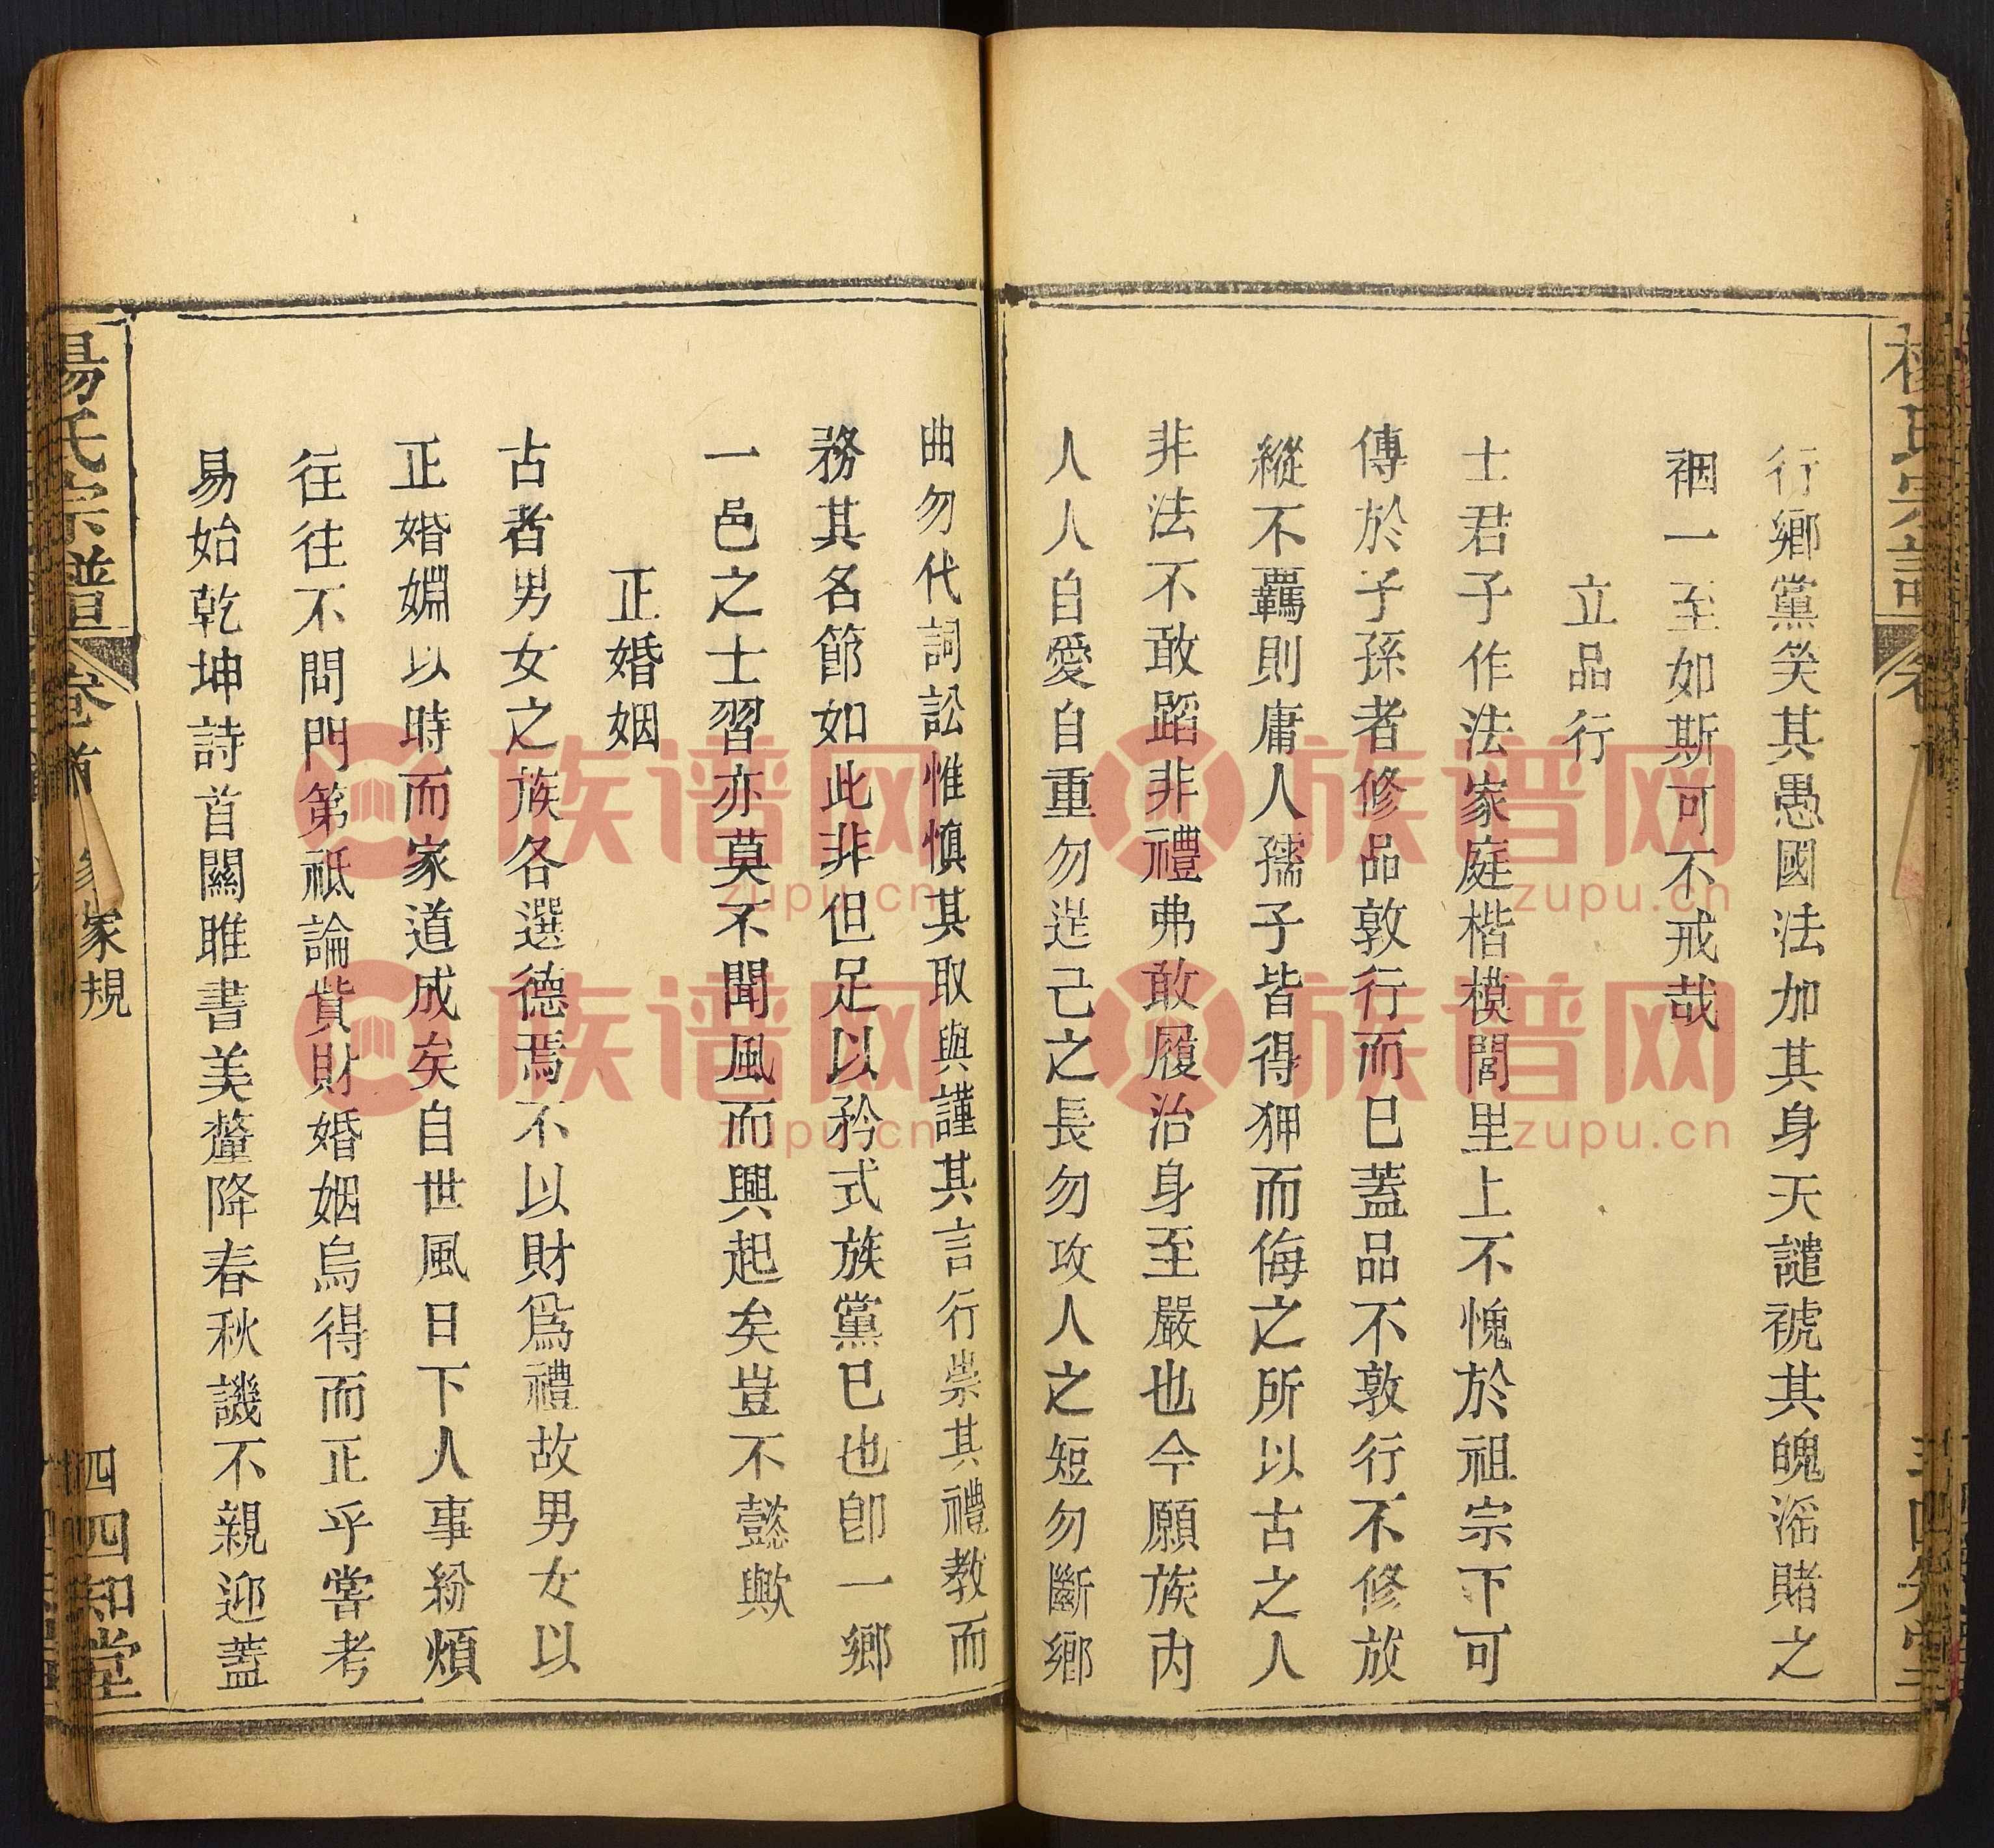 行鄉黨笑其愚國法加其身天譴褫其魄滛賭之
禍一至如斯可不戒哉
立品行
士君子作法家庭楷模閭里上不愧於祖宗下可
傳於子孫者修品敦行而已蓋品不敦行不修放
縱不羈則庸人孺子皆得狎而侮之所以古之人
非法不敢蹈非禮弗敢履治身至嚴也今願族内
人人自愛自重勿逞己之長勿攻人之短勿斷鄉
曲勿代詞訟惟慎其取與謹其言行崇其禮教而
務其名節如此非但足以矜式族黨已也卽一鄉
一邑之士習亦莫不聞風而興起矣豈不懿歟
正婚姻
古者男女之族各選德焉不以財爲禮故男女以
正婚姻以時而家道成矣自世風日下人事紛煩
往往不問門第祗論貲財婚姻烏得而正乎嘗考
易始乾坤詩首關雎書美釐降春秋譏不親迎蓋
楊氏宗譜
卷首
家規
四知堂
族谱网
zupu.cn
族谱网
zupu.cn
族谱网
zupu.cn
族谱网
zupu.cn